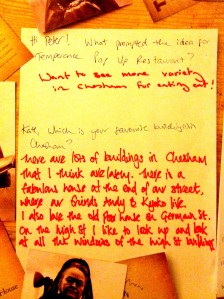 Hi Peter! What prompted the idea for
Temperance Pop Up Restaurant?
Want to see more variety
in Chesham for eating out!
Kate, which is your favourite building in
Chesham?
There are lots of buildings in Chesham
that I think are lovely. There is a
fabulous house at the end of our street,
where our friends Andy & Kyoko live.
I also love the old house on Germain St.
On the high st I like to look up and look
at all the windows of the high st buildings
House